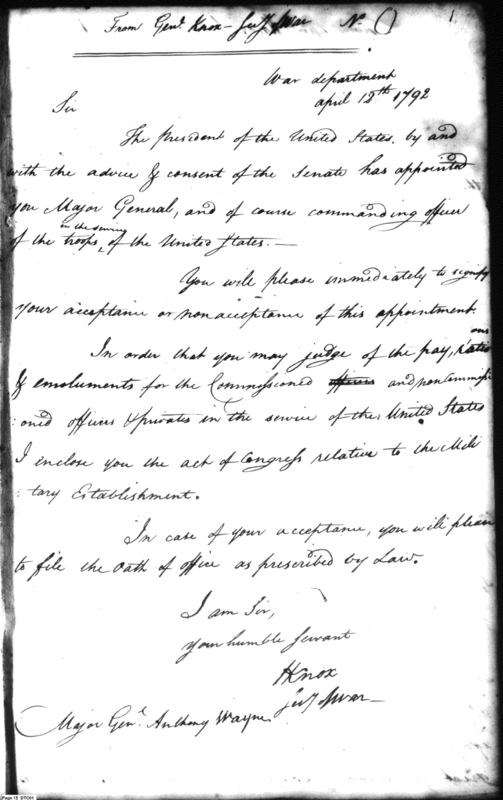 From Genl. Knox - Secy of War No. 1
War department
april 12th 1792
Sir
The President of the United States, by and
with the advice & consent of the Senate has appointed
you Major General, and of course commanding officer
of the troops in the service of the United States.—
You will please immediately to signify
your acceptance or nonacceptance of this appointment.
In order that you may judge of the pay, rations
& emoluments for the Commissioned officers and noncommissi
:oned officers & privates in the service of the United States
I enclose you the act of Congress relative to the Mili
:tary Establishment.
In case of your acceptance, you will please
to file the Oath of office as prescribed by Law.
I am Sir,
your humble Servant
HKnox
Secy of War
Major Genl. Anthony Wayne
Page 15 BTC01